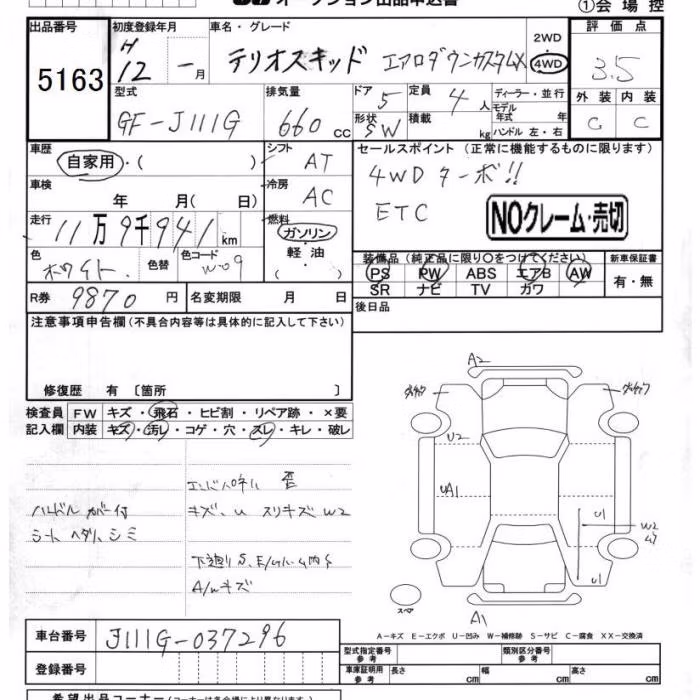 ①会場控
出品番号
5163
初度登録年月
H
12 - 月
車名・グレード
テリオスキッド エアロダウンカスタムX
2WD
4WD
評価点
3.5
型式
GF-J111G
排気量
660 CC
ドア
5
定員
4 人
形状
SW
積載
kg
ディーラー・並行
モデル
年式 年
ハンドル 左・右
外装 内装
C C
車歴
自家用・( )
シフト
AT
セールスポイント (正常に機能するものに限ります)
4WD ターボ!!
ETC
NOクレーム・売切
車検
年 月( 日)
冷房
AC
走行
11万9千941km
燃料
ガソリン
軽油
( )
色
ホワイト
色替
色コード
W09
装備品 (純正品に限り○をつけてください)
PS PW ABS エアB AW
SR ナビ TV カワ
新車保証書
有・無
R券
9870 円
名変期限 月 日
後日品
注意事項申告欄(不具合内容等は具体的に記入して下さい)
修復歴 有 〔箇所 〕
検査員
記入欄
FW キズ・飛石・ヒビ割・リペア跡・×要
内装 キズ・汚レ・コゲ・穴・スレ・キレ・破レ
ハンドル カバー付
シート ヘタリ、シミ
エンドパネル 歪
キズ、U スリキズ W2
下廻りS、E/gルーム内S
A/wキズ
A2
U2
UA1
U1
W2
U1
A1
スペア
A-キズ E-エクボ U-凹み W-補修跡 S-サビ C-腐食 XX-交換済
車台番号
J111G-037296
登録番号
型式指定番号
参考
類別区分番号
参考
車庫証明用
参考
長さ cm
幅 cm
高さ cm